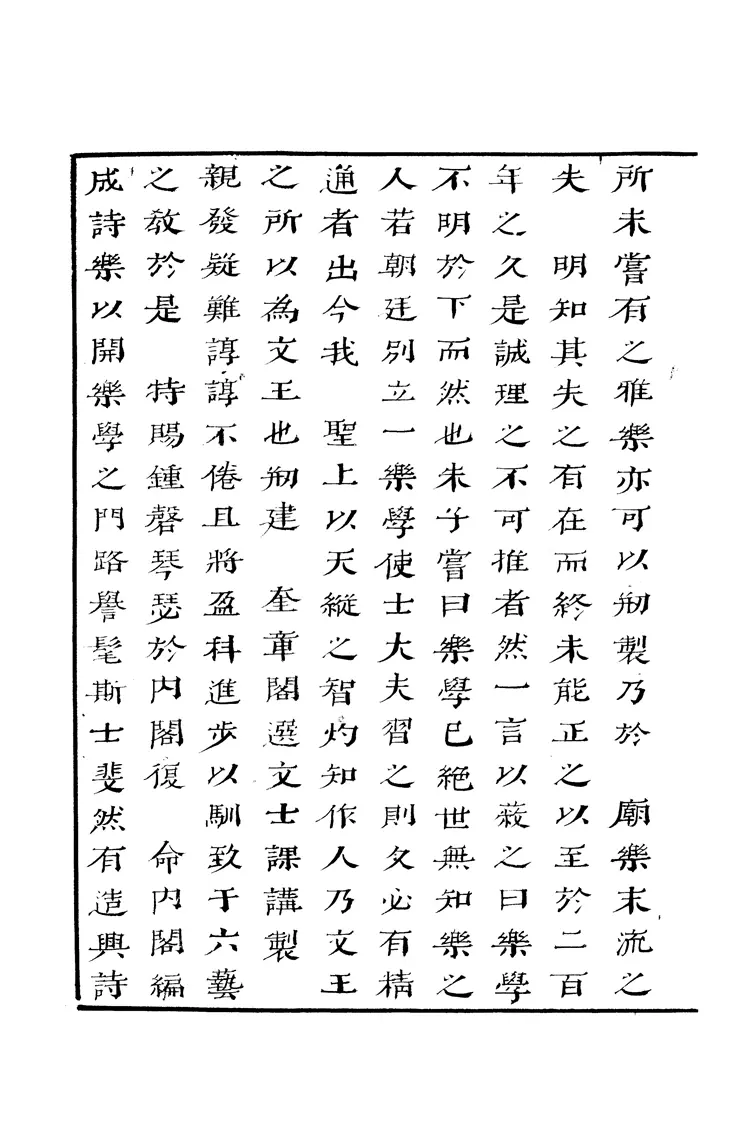 所未嘗有之雅樂亦可以刱製乃於　廟樂末流之
失　明知其失之有在而終未能正之以至於二百
年之久是誠理之不可推者然一言以蔽之曰樂學
不明於下而然也朱子嘗曰樂學已絕世無知樂之
人若朝廷別立一樂學使士大夫習之則久必有精
通者出今我　聖上以天縱之智灼知作人乃文王
之所以為文王也刱建　奎章閣選文士課講製
親發疑難諄諄不倦且將盈科進步以馴致于六藝
之教於是　特賜鍾磬琴瑟於內閣復　命內閣編
成詩樂以開樂學之門路譽髦斯士斐然有造興詩